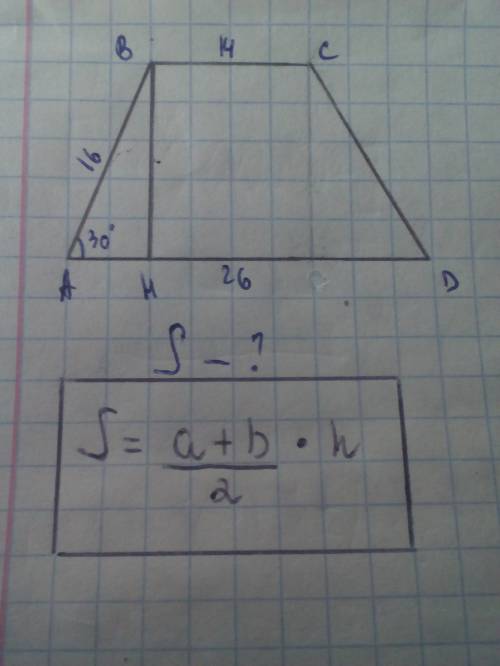 B 14 C
16
30°
A H 26 D
S - ?
S = a + b / 2 · h